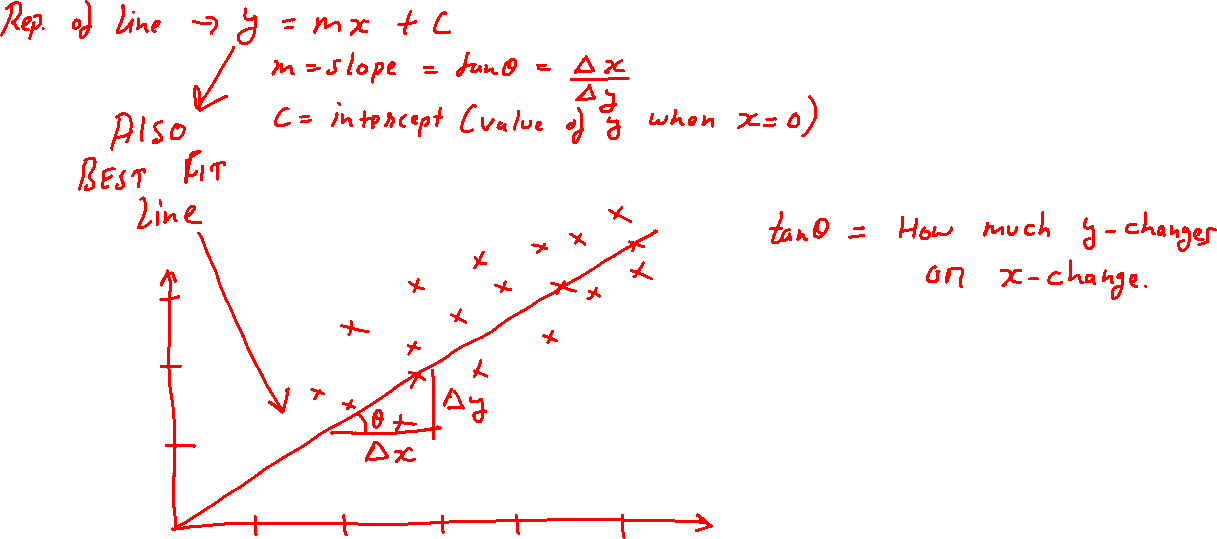 Rep. of line → y = mx + c
m = slope = tanθ = Δx / Δy
C = intercept (value of y when x=0)
Also
BEST FIT
Line
tanθ = How much y-changes
on x-change.
Δy
θ
Δx